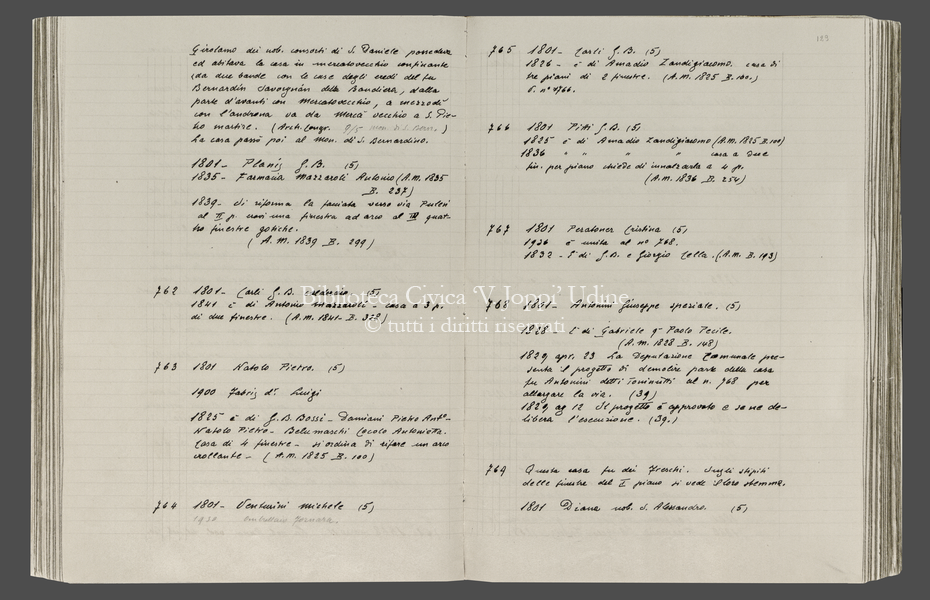 Girolamo dei nob. consorti di S. Daniele possedeva
ed abitava la casa in mercatovecchio confinante
da due bande con le case degli eredi del fu
Bernardin Savorgnan della Bandiera, dalla
parte d'avanti con Mercatovecchio, a mezzodì
con l'androna va da Mercà vecchio a S. Pie-
tro martire. (Arch. Congr. mon. di S. Bern.)
La casa passò poi al Mon. di S. Bernardino.
1801 - Planis G.B. (5)
1835 - Farmacia Mazzaroli Antonio (A.M. 1835
B. 237)
1839 - Si riforma la facciata verso via Pulesi
al II p. eravi una finestra ad arco al III quat-
tro finestre gotiche.
(A.M. 1839 B. 299)
762 1801 - Carli G.B. (5)
1841 è di Antonio Mazzaroli - casa a 3 p.
di due finestre. (A.M. 1841 - B. 328)
763 1801 Natolo Pietro. (5)
1900 Fabris dr. Luigi
1825 è di G.B. Bossi - Damiani Pietro Anto -
Natolo Pietro - Belumaschi Cecolo Antonietta.
Casa di 4 finestre - si ordina di rifare un arco
crollante - (A.M. 1825 B. 100)
764 1801 - Venturini Michele (5)
1930 Ombrellaio Fornara.
189
765 1801 - Carli G.B. (5)
1826 - è di Amadio Zandigiacomo. casa di
tre piani di 2 finestre. (A.M. 1825 B. 100.)
V. n° 4766.
766 1801 Pitti G.B. (5)
1825 è di Amadio Zandigiacomo (A.M. 1825 B. 100)
1836 " " " " casa a due
fin. per piano chiede di innalzarla a 4 p.
(A.M. 1836 B. 254)
767 1801 Peratoner Cristina (5)
1926 è unita al n° 768.
1832 - È di G.B. e Giorgio Cella. (A.M. B. 193)
768 1801 - Antonini Giuseppe speziale. (5)
1828 - È di Gabriele q. Paolo Pecile.
(A.M. 1828 B. 148)
1829 apr. 23 La Deputazione Comunale pre-
senta il progetto di demolire parte della casa
fu Antonini detti Toninutti al n. 768 per
allargare la via. (39)
1829 ag 12 Il progetto è approvato e se ne de-
libera l'esecuzione. (39.)
769 Questa casa fu dei Freschi. Sugli stipiti
delle finestre del I piano si vede il loro stemma.
1801 Diana nob. d. Alessandro. (5)
Biblioteca Civica 'V. Joppi' Udine
© tutti i diritti riservati